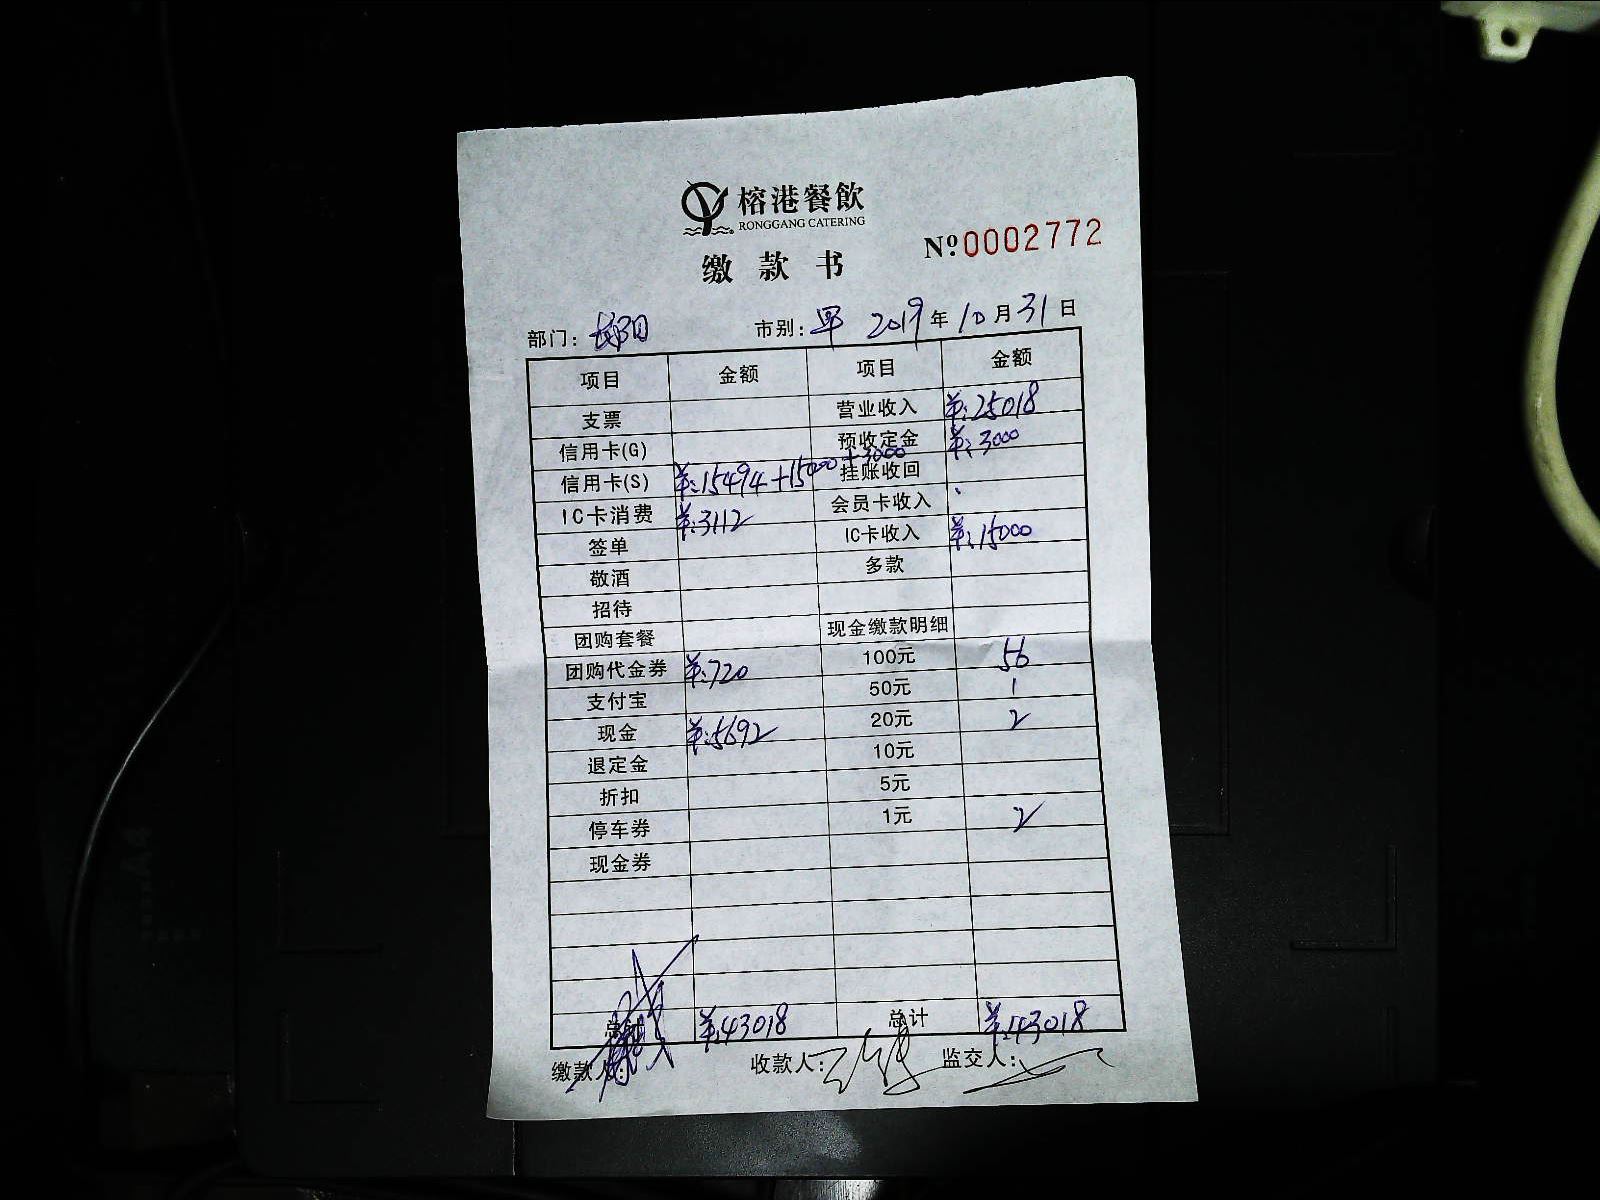 榕港餐飲
RONGGANG CATERING
No.0002772
缴款书
部门: 市别: 早 2019年10月31日
项目 金额 项目 金额
支票 营业收入 ¥:25018
信用卡(G) 预收定金 ¥:3000
信用卡(S) ¥:15494+15000+3000 挂账收回
IC卡消费 ¥:3112 会员卡收入
签单 IC卡收入 ¥:15000
敬酒 多款
招待
团购套餐 现金缴款明细
团购代金券 ¥:720 100元 56
支付宝 50元 1
现金 ¥:5692 20元 2
退定金 10元
折扣 5元
停车券 1元 2
现金券
总计 ¥:43018 总计 ¥:43018
缴款人: 收款人: 监交人: